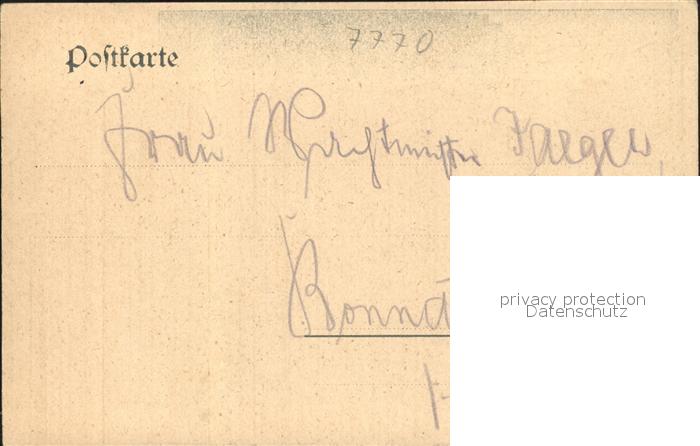 7770
Postkarte
Frau Wachtmeister Jaeger,
privacy protection
Datenschutz